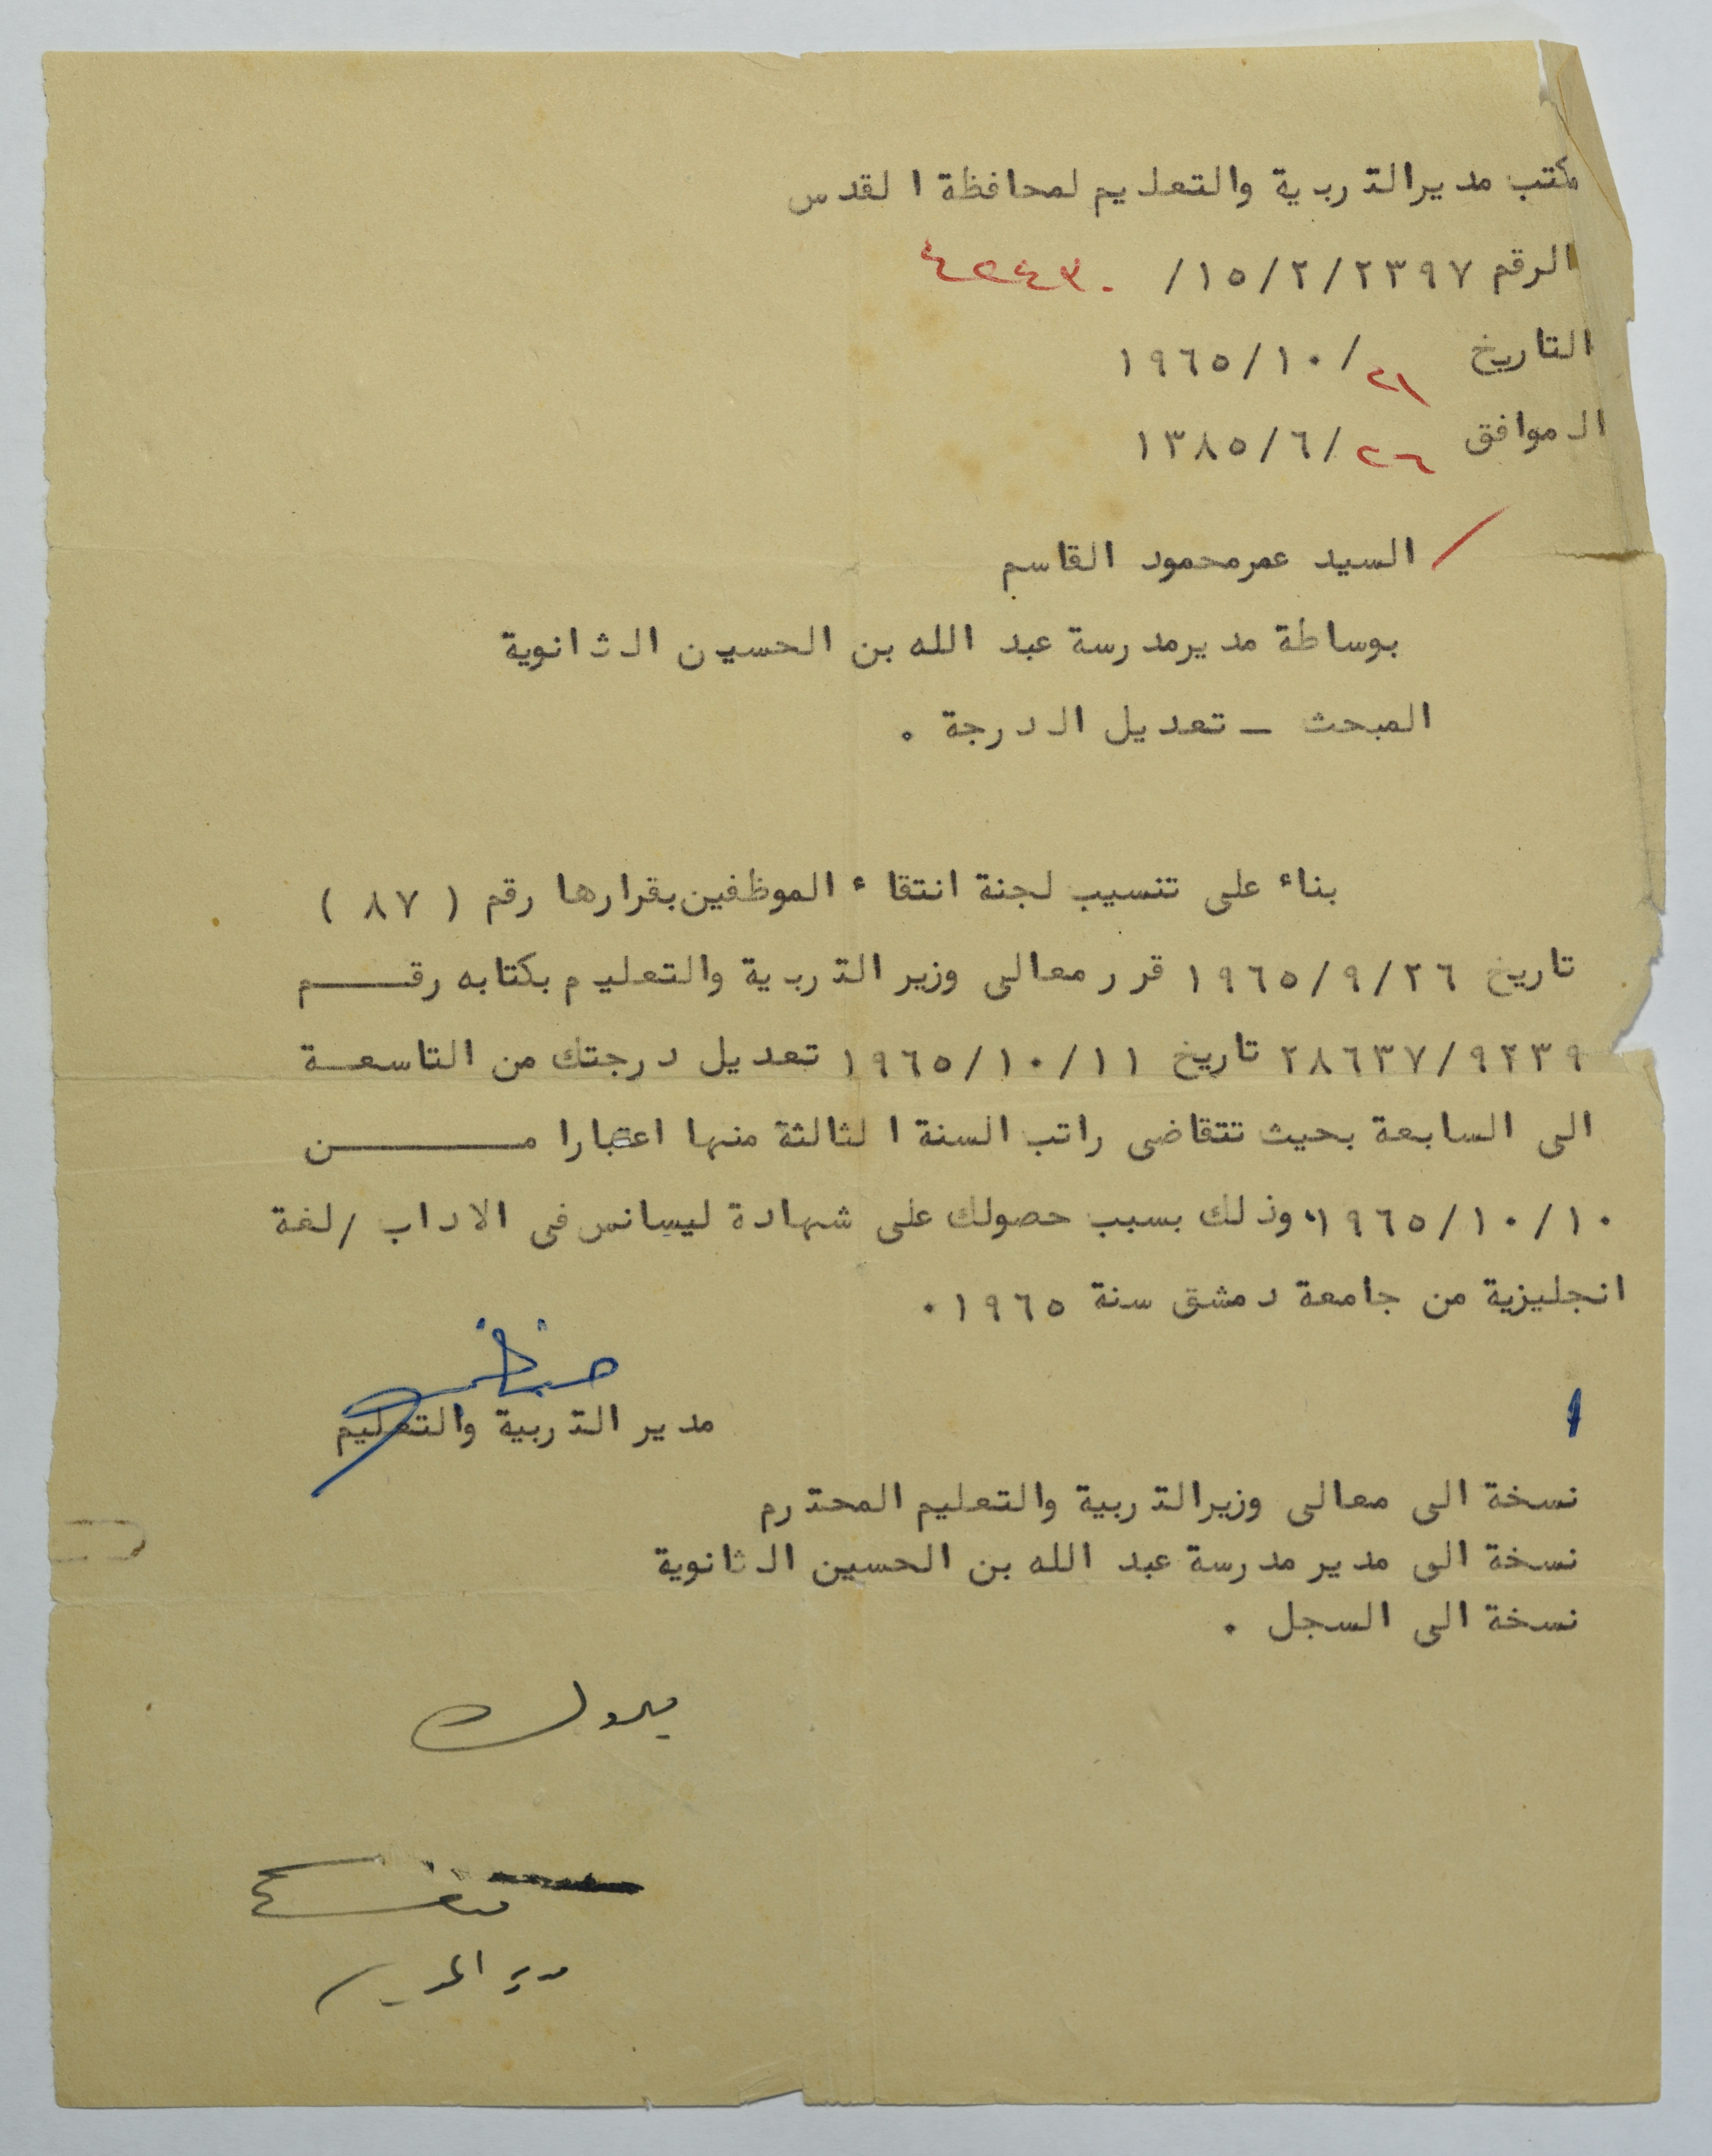 مكتب مدير التربية والتعليم لمحافظة القدس
الرقم ٢٣٩٧/٢/١٥/ ٤٢٤٣٠
التاريخ ٢١/١٠/١٩٦٥
الموافق ٢٦/٦/١٣٨٥
السيد عمر محمود القاسم
بوساطة مدير مدرسة عبد الله بن الحسين الثانوية
المبحث ـ تعديل الدرجة .
بناء على تنسيب لجنة انتقاء الموظفين بقرارها رقم ( ٨٧ )
تاريخ ٢٦/٩/١٩٦٥ قرر معالي وزير التربية والتعليم بكتابه رقــــم
٩٢٣٩/٢٨٦٣٧ تاريخ ١١/١٠/١٩٦٥ تعديل درجتك من التاسعـة
الى السابعة بحيث تتقاضى راتب السنة الثالثة منها اعتبارا مــــــن
١٠/١٠/١٩٦٥ وذلك بسبب حصولك على شهادة ليسانس في الاداب /لغة
انجليزية من جامعة دمشق سنة ١٩٦٥ .
مدير التربية والتعليم
نسخة الى معالي وزير التربية والتعليم المحترم
نسخة الى مدير مدرسة عبد الله بن الحسين الثانوية
نسخة الى السجل .
مبروك
مدير المدرسة